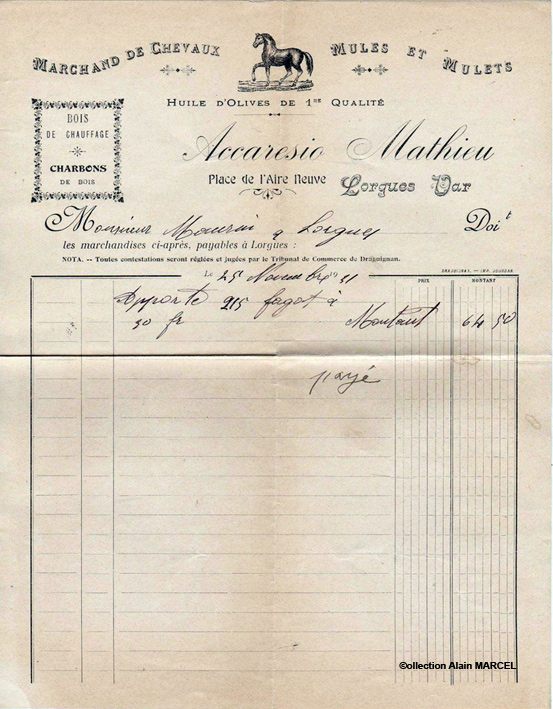 MARCHAND DE CHEVAUX
MULES ET MULETS
HUILE D'OLIVES DE 1RE QUALITÉ
BOIS
DE CHAUFFAGE
CHARBONS
DE BOIS
Accaresio Mathieu
Place de l'Aire Neuve Lorgues Var
Monsieur à Lorgues Doit
les marchandises ci-après, payables à Lorgues :
NOTA. -- Toutes contestations seront réglées et jugées par le Tribunal de Commerce de Draguignan.
DRAGUIGNAN. — IMP.
Le 25 Novembre 31
PRIX MONTANT
Apporté 215 fagot à
30 fr Montant 64 50
payé
©ollection Alain MARCEL